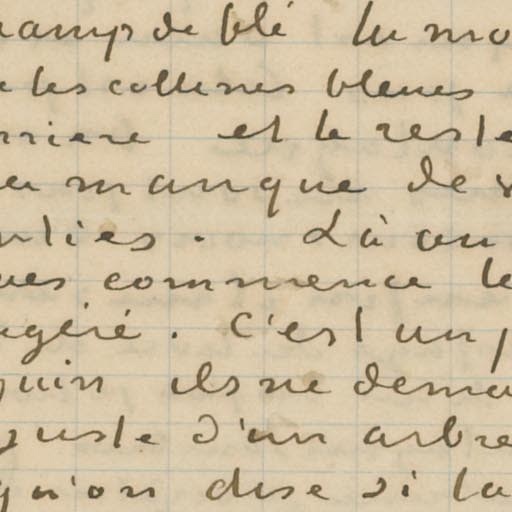 champ de blé tu mo
e les collines bleues
rriere et le reste
a manque de
uties. Là ou
ues commence le
agéré. C'est un p
quin ils ne dema
juste d'un arbre
qu'on dise si la